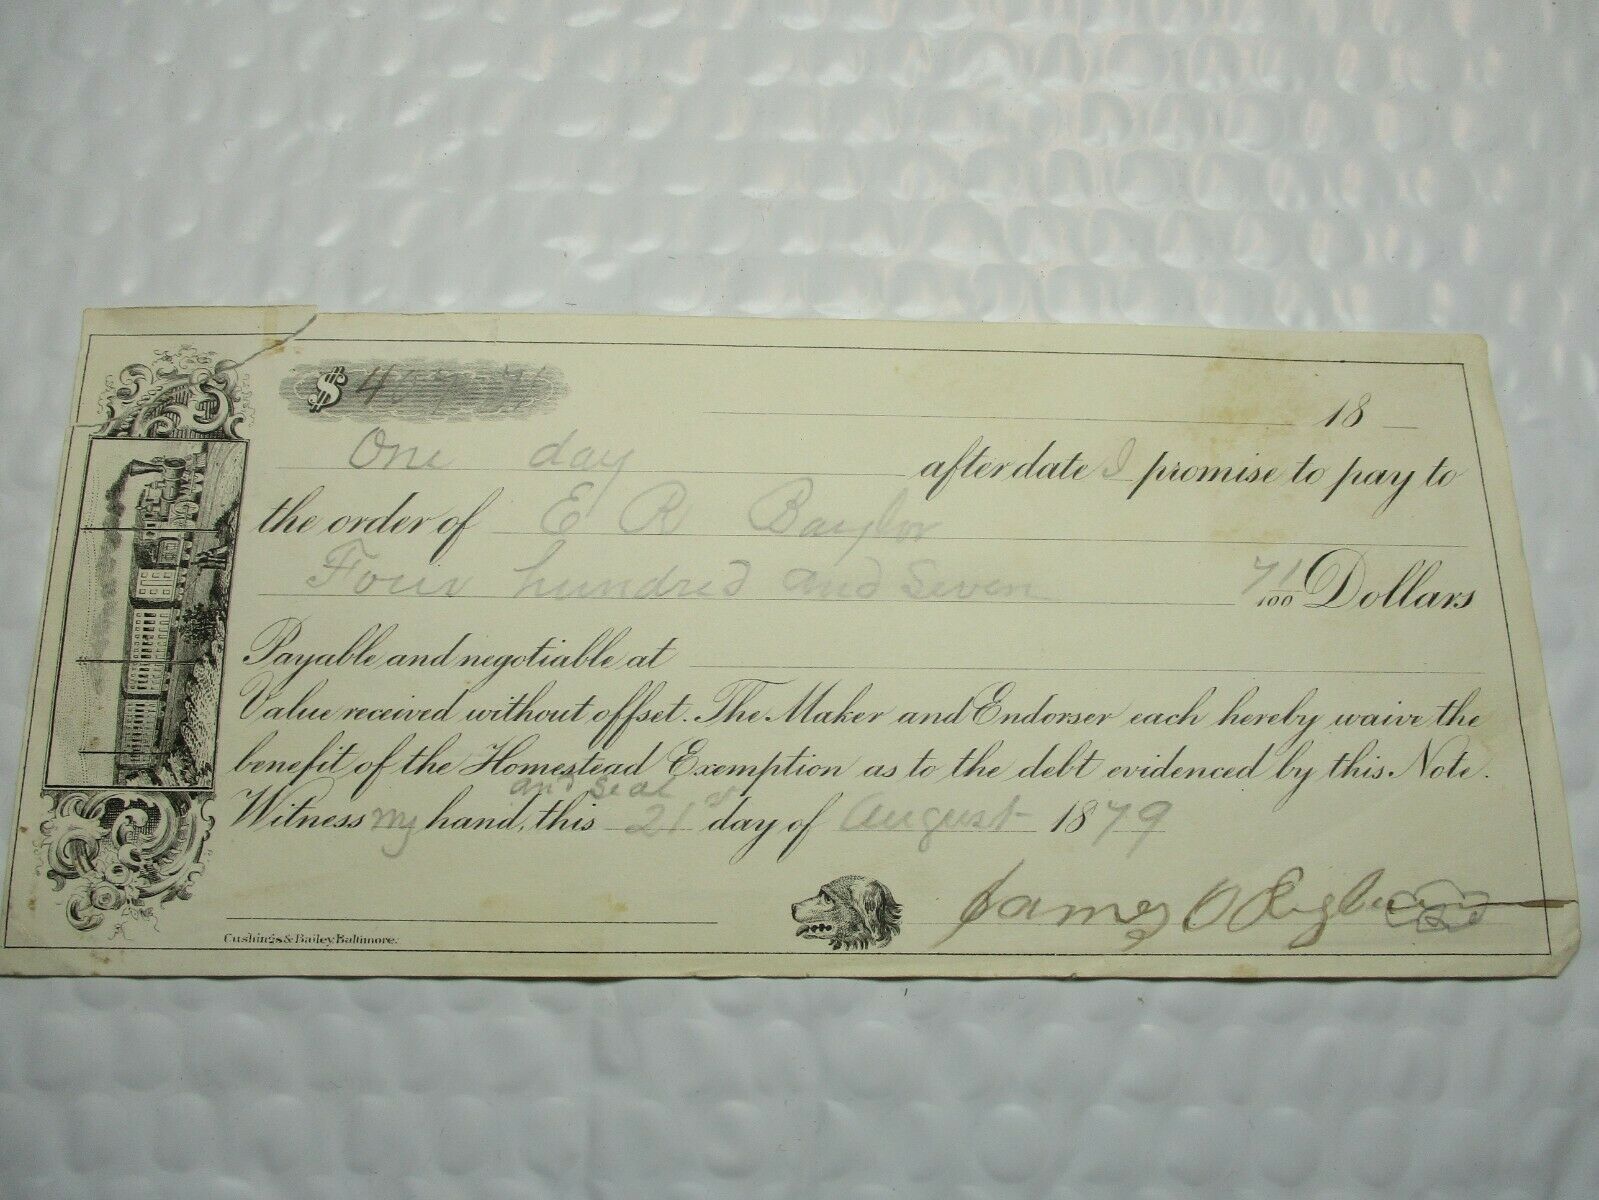 $ 407.71
18
One day after date I promise to pay to
the order of E R Baylor
Four hundred and Seven 71/100 Dollars
Payable and negotiable at
Value received without offset. The Maker and Endorser each hereby waive the
benefit of the Homestead Exemption as to the debt evidenced by this Note.
and Seal
Witness my hand, this 21st day of August 1879
James O
Cushings & Bailey, Baltimore.